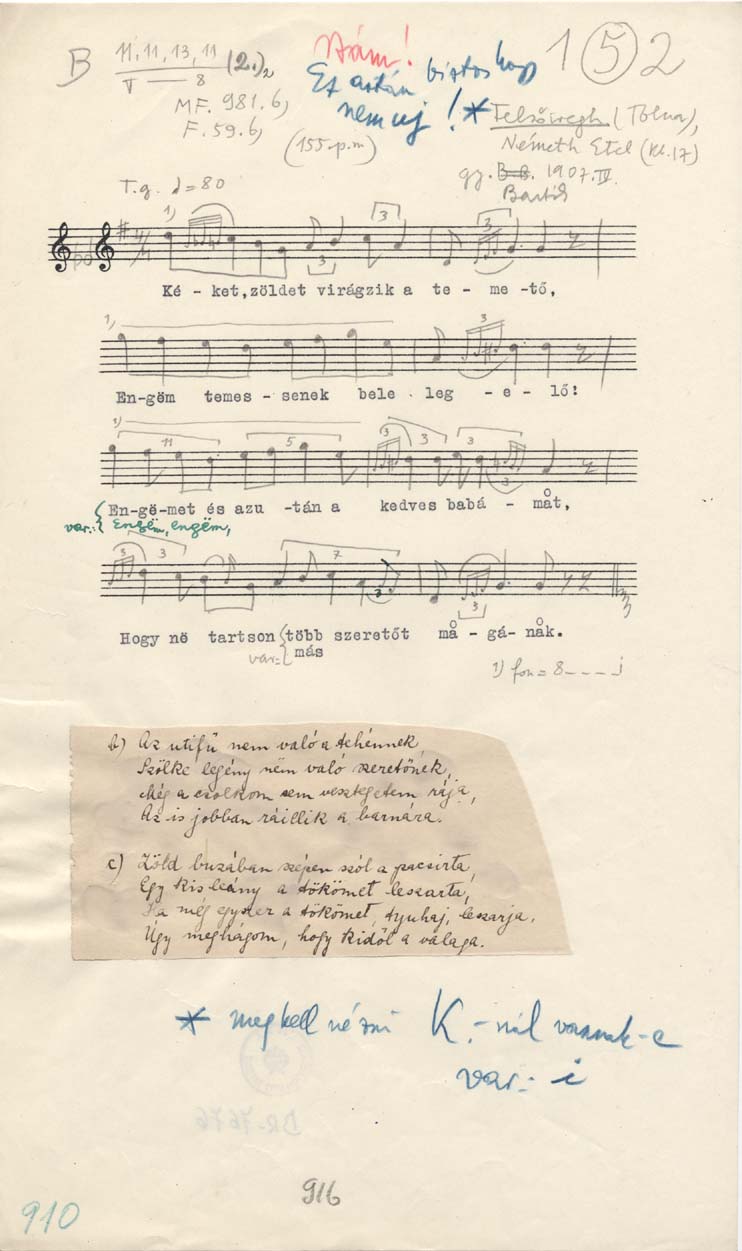 B 11, 11, 13, 11 (2.)₂
V — 8
MF. 981.b,
F. 59.b,
(155. p. m)
Ez aztán biztos hogy
nem uj! *
1 5 2
Felsőiregh (Tolna),
Németh Etel (kb. 17)
gy. B. B. 1907. IV.
Bartók
T. g. = 80
1) 3 3 3
Ké - ket, zöldet virágzik a te - me -tő,
1) 3
En-göm temes - senek bele leg - e - lő!
1) 11 5 3 3 3
En-gë-met és azu -tán a kedves babá - måt,
var.: Engëm, engëm,
3 3 7 3 3
Hogy në tartson több szeretőt må - gá- nåk.
var: más
1) fon = 8 - - - - j
b) Az utifű nem való a tehénnek,
Szőlke legény nëm való szeretőnek,
Még a csolkom sem vesztegetem rája,
Az is jobban ráillik a barnára.
c) Zöld buzában szépen szól a pacsirta,
Egy kis leány a tökömet leszarta,
Ha még egyszer a tökömet, tyuhaj, leszarja,
Úgy meghágom, hogy kidől a valaga.
* megkell nézni K.-nál vannak-e
var.- i
DR-7676
916
910